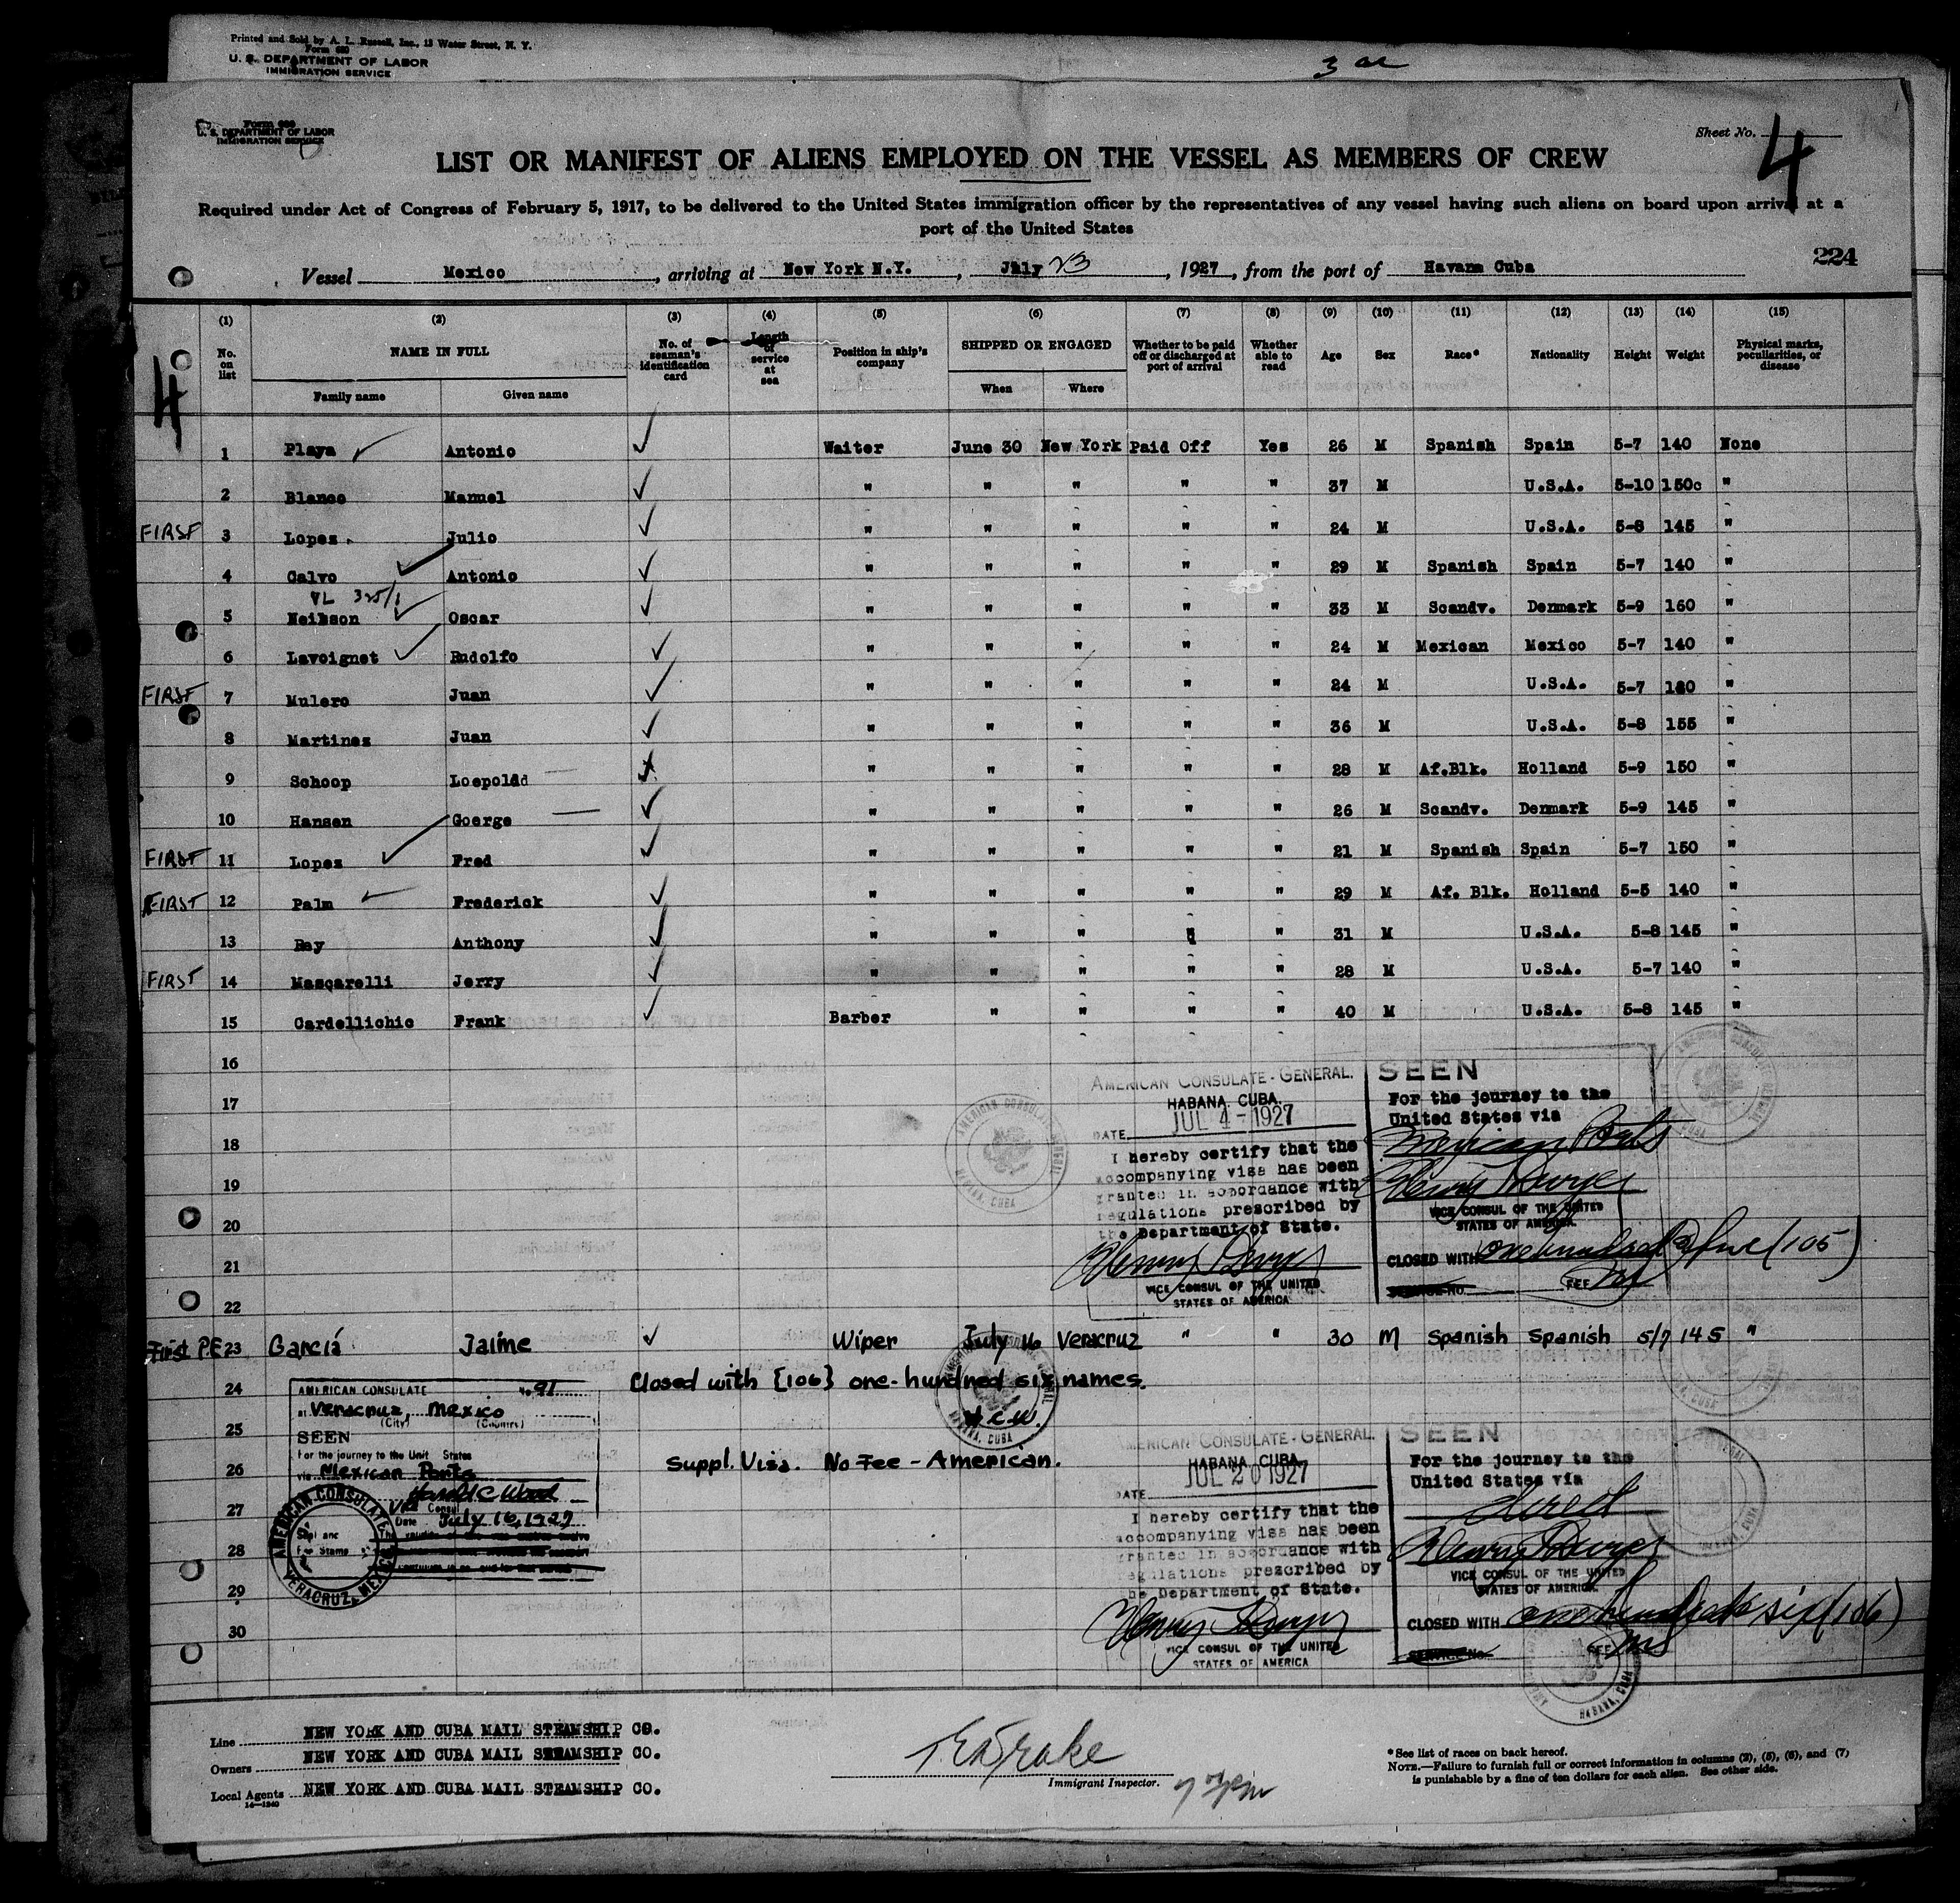 Printed and Sold by A. L. Russell, Inc., 13 Water Street, N. Y.
Form 680
U. S. DEPARTMENT OF LABOR
IMMIGRATION SERVICE
U. S. DEPARTMENT OF LABOR
IMMIGRATION SERVICE
Sheet No. 4
LIST OR MANIFEST OF ALIENS EMPLOYED ON THE VESSEL AS MEMBERS OF CREW
Required under Act of Congress of February 5, 1917, to be delivered to the United States immigration officer by the representatives of any vessel having such aliens on board upon arrival at a
port of the United States
224
Vessel Mexico, arriving at New York N.Y., July 23, 1927, from the port of Havana Cuba
4
(1) (2) (3) (4) (5) (6) (7) (8) (9) (10) (11) (12) (13) (14) (15)
No. on list NAME IN FULL No. of seaman's identification card Length of service at sea Position in ship's company SHIPPED OR ENGAGED Whether to be paid off or discharged at port of arrival Whether able to read Age Sex Race* Nationality Height Weight Physical marks, peculiarities, or disease
Family name Given name When Where
1 Playa ✓ Antonio ✓ Waiter June 30 New York Paid Off Yes 26 M Spanish Spain 5-7 140 None
2 Blanco Manuel ✓ " " " " " 37 M U.S.A. 5-10 150c "
FIRST 3 Lopez Julio ✓ " " " " " 24 M U.S.A. 5-8 145 "
4 Calvo ✓ Antonio ✓ " " " " " 29 M Spanish Spain 5-7 140 "
VL 325/1
5 Neilson ✓ Oscar ✓ " " " " " 33 M Scandv. Denmark 5-9 160 "
6 Lavoignet ✓ Rudolfo ✓ " " " " " 24 M Mexican Mexico 5-7 140 "
FIRST 7 Mulero Juan ✓ " " " " " 24 M U.S.A. 5-7 "
8 Martinez Juan ✓ " " " " " 36 M U.S.A. 5-8 155 "
9 Schoop Loepoldd " " " " " 28 M Af.Blk. Holland 5-9 150 "
10 Hansen Goerge ✓ " " " " " 26 M Scandv. Denmark 5-9 145 "
FIRST 11 Lopez ✓ Fred ✓ " " " " " 21 M Spanish Spain 5-7 150 "
FIRST 12 Palm ✓ Frederick ✓ " " " " " 29 M Af. Blk. Holland 5-5 140 "
13 Ray Anthony ✓ " " " " 31 M U.S.A. 5-8 145 "
FIRST 14 Mascarelli Jerry ✓ " " " " " 28 M U.S.A. 5-7 140 "
15 Cardellichic Frank ✓ Barber " " " " 40 M U.S.A. 5-8 145 "
16
17
18
19
20
21
22
AMERICAN CONSULATE-GENERAL.
HABANA, CUBA.
DATE JUL 4-1927
I hereby certify that the
accompanying visa has been
granted in accordance with
regulations prescribed by
the Department of State.
VICE CONSUL OF THE UNITED
STATES OF AMERICA
SEEN
For the journey to the
United States via
Mexican Ports
VICE CONSUL OF THE UNITED
STATES OF AMERICA.
CLOSED WITH one hundred & five (105)
SERVICE NO. FEE
First P.E. 23 García Jaime ✓ Wiper July 16 Veracruz " " 30 M Spanish Spanish 5/7 145 "
24 Closed with {106} one-hundred six names.
25 H.C.W.
26 Suppl. Visa. No Fee - American.
27
28
29
30
AMERICAN CONSULATE No. 91
at Veracruz, Mexico
(City) (Country)
SEEN
For the journey to the Unit States
via Mexican Ports
Harold C Wood
Vice Consul
Date July 16, 1927
AMERICAN CONSULATE
VERACRUZ, MEXICO
AMERICAN CONSULATE-GENERAL.
HABANA, CUBA.
DATE JUL 20 1927
I hereby certify that the
accompanying visa has been
granted in accordance with
regulations prescribed by
the Department of State.
VICE CONSUL OF THE UNITED
STATES OF AMERICA
SEEN
For the journey to the
United States via
direct
VICE CONSUL OF THE UNITED
STATES OF AMERICA.
CLOSED WITH one hundred six (106)
SERVICE No. FEE
Line NEW YORK AND CUBA MAIL STEAMSHIP CO.
Owners NEW YORK AND CUBA MAIL STEAMSHIP CO.
Local Agents NEW YORK AND CUBA MAIL STEAMSHIP CO.
14—1240
Immigrant Inspector.
*See list of races on back hereof.
NOTE.—Failure to furnish full or correct information in columns (2), (5), (6), and (7)
is punishable by a fine of ten dollars for each alien. See other side.